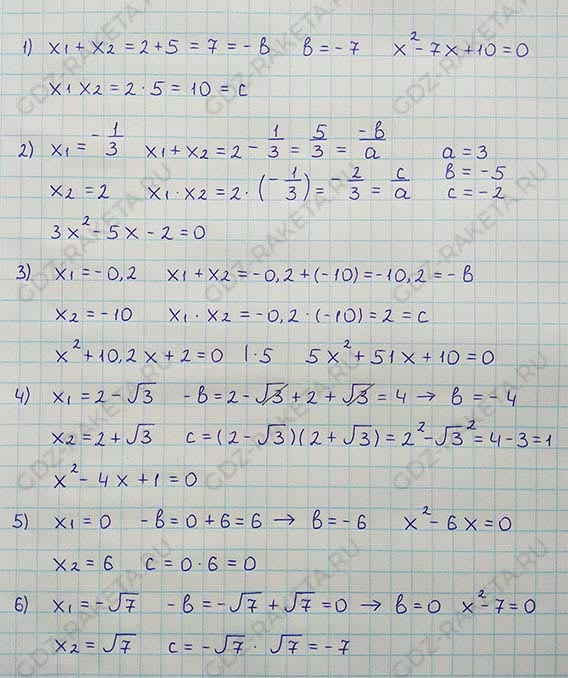 1) x₁ + x₂ = 2 + 5 = 7 = -в   в = -7   x² - 7x + 10 = 0
x₁ x₂ = 2 · 5 = 10 = c
2) x₁ = -1/3   x₁ + x₂ = 2 - 1/3 = 5/3 = -в/a   a = 3
в = -5
x₂ = 2   x₁ · x₂ = 2 · (-1/3) = -2/3 = c/a   c = -2
3x² - 5x - 2 = 0
3) x₁ = -0,2   x₁ + x₂ = -0,2 + (-10) = -10,2 = -в
x₂ = -10   x₁ · x₂ = -0,2 · (-10) = 2 = c
x² + 10,2x + 2 = 0   |·5   5x² + 51x + 10 = 0
4) x₁ = 2 - √3   -в = 2 - √3 + 2 + √3 = 4 → в = -4
x₂ = 2 + √3   c = (2 - √3)(2 + √3) = 2² - √3² = 4 - 3 = 1
x² - 4x + 1 = 0
5) x₁ = 0   -в = 0 + 6 = 6 → в = -6   x² - 6x = 0
x₂ = 6   c = 0 · 6 = 0
6) x₁ = -√7   -в = -√7 + √7 = 0 → в = 0   x² - 7 = 0
x₂ = √7   c = -√7 · √7 = -7
GDZ-RAKETA.RU